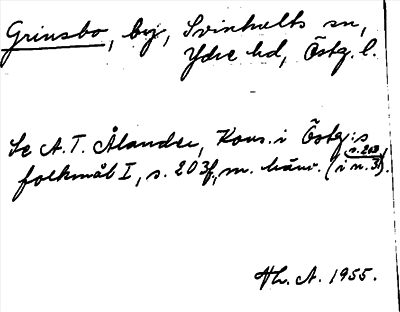 Grinsbo, by, Svinhults sn,
Ydre hd, Östg. l.
Se A. T. Ålander, Kons. i Östg:s
folkmål I, s. 203 f., m. hänv. (s. 203 i n. 3).
Th. A. 1955.